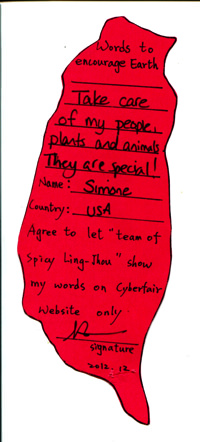 Words to
encourage Earth
Take care
of my people,
plants and animals
They are special!
Name: Simone
Country: USA
Agree to let "team of
Spicy Ling-Zhou" show
my words on Cyberfair
Website only
signature
2012.12.